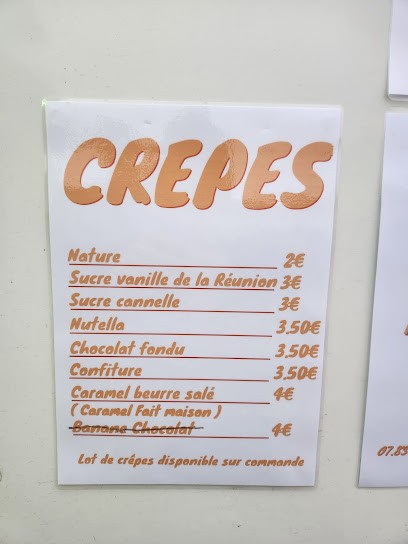 CREPES
Nature 2€
Sucre vanille de la Réunion 3€
Sucre cannelle 3€
Nutella 3,50€
Chocolat fondu 3,50€
Confiture 3,50€
Caramel beurre salé 4€
( Caramel Fait maison )
Banane Chocolat 4€
Lot de crêpes disponible sur commande
07.83